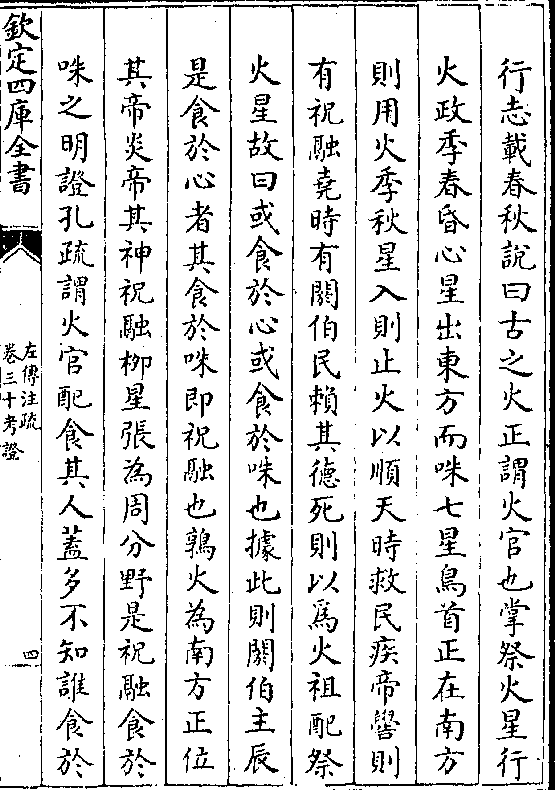 行志載春秋說曰古之火正謂火官也掌祭火星行
火政季春昏心星出東方而咮七星鳥首正在南方
則用火季秋星入則止火以順天時救民疾帝嚳則
有祝融堯時有閼伯民賴其德死則以爲火祖配祭
火星故曰或食於心或食於咮也據此則閼伯主辰
是食於心者其食於咮即祝融也鶉火為南方正位
其帝炎帝其神祝融栁星張為周分野是祝融食於
咮之明證孔疏謂火官配食其人蓋多不知誰食於
欽定四庫全書
左傳注疏
卷三十考證
四